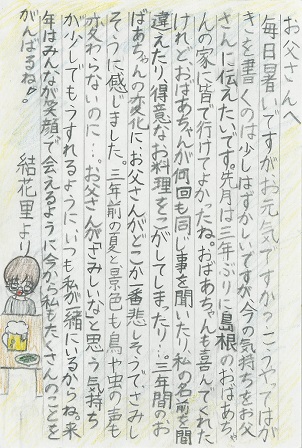 お父さんへ
毎日暑いですがお元気ですか？こうやってはが
きを書くのは少しはずかしいですが、今の気持ちをお父
さんに伝えたいです。先月は三年ぶりに島根のおばあち
ゃんの家に皆で行けてよかったね。おばあちゃんも喜んでくれた
けれど、おばあちゃんが何回も同じ事を聞いたり、私の名前を間
違えたり、得意なお料理をこがしてしまったり…。三年間のお
ばあちゃんの変化に、お父さんがどこか一番悲しそうで、さみし
そうに感じました。三年前の夏と景色も鳥や虫の声も
変わらないのに…。お父さんがさみしいなと思う気持ち
が少しでもうすれるように、いつも私が一緒にいるからね。来
年はみんなが笑顔で会えるように今から私もたくさんのことを
がんばるね！
結花里より